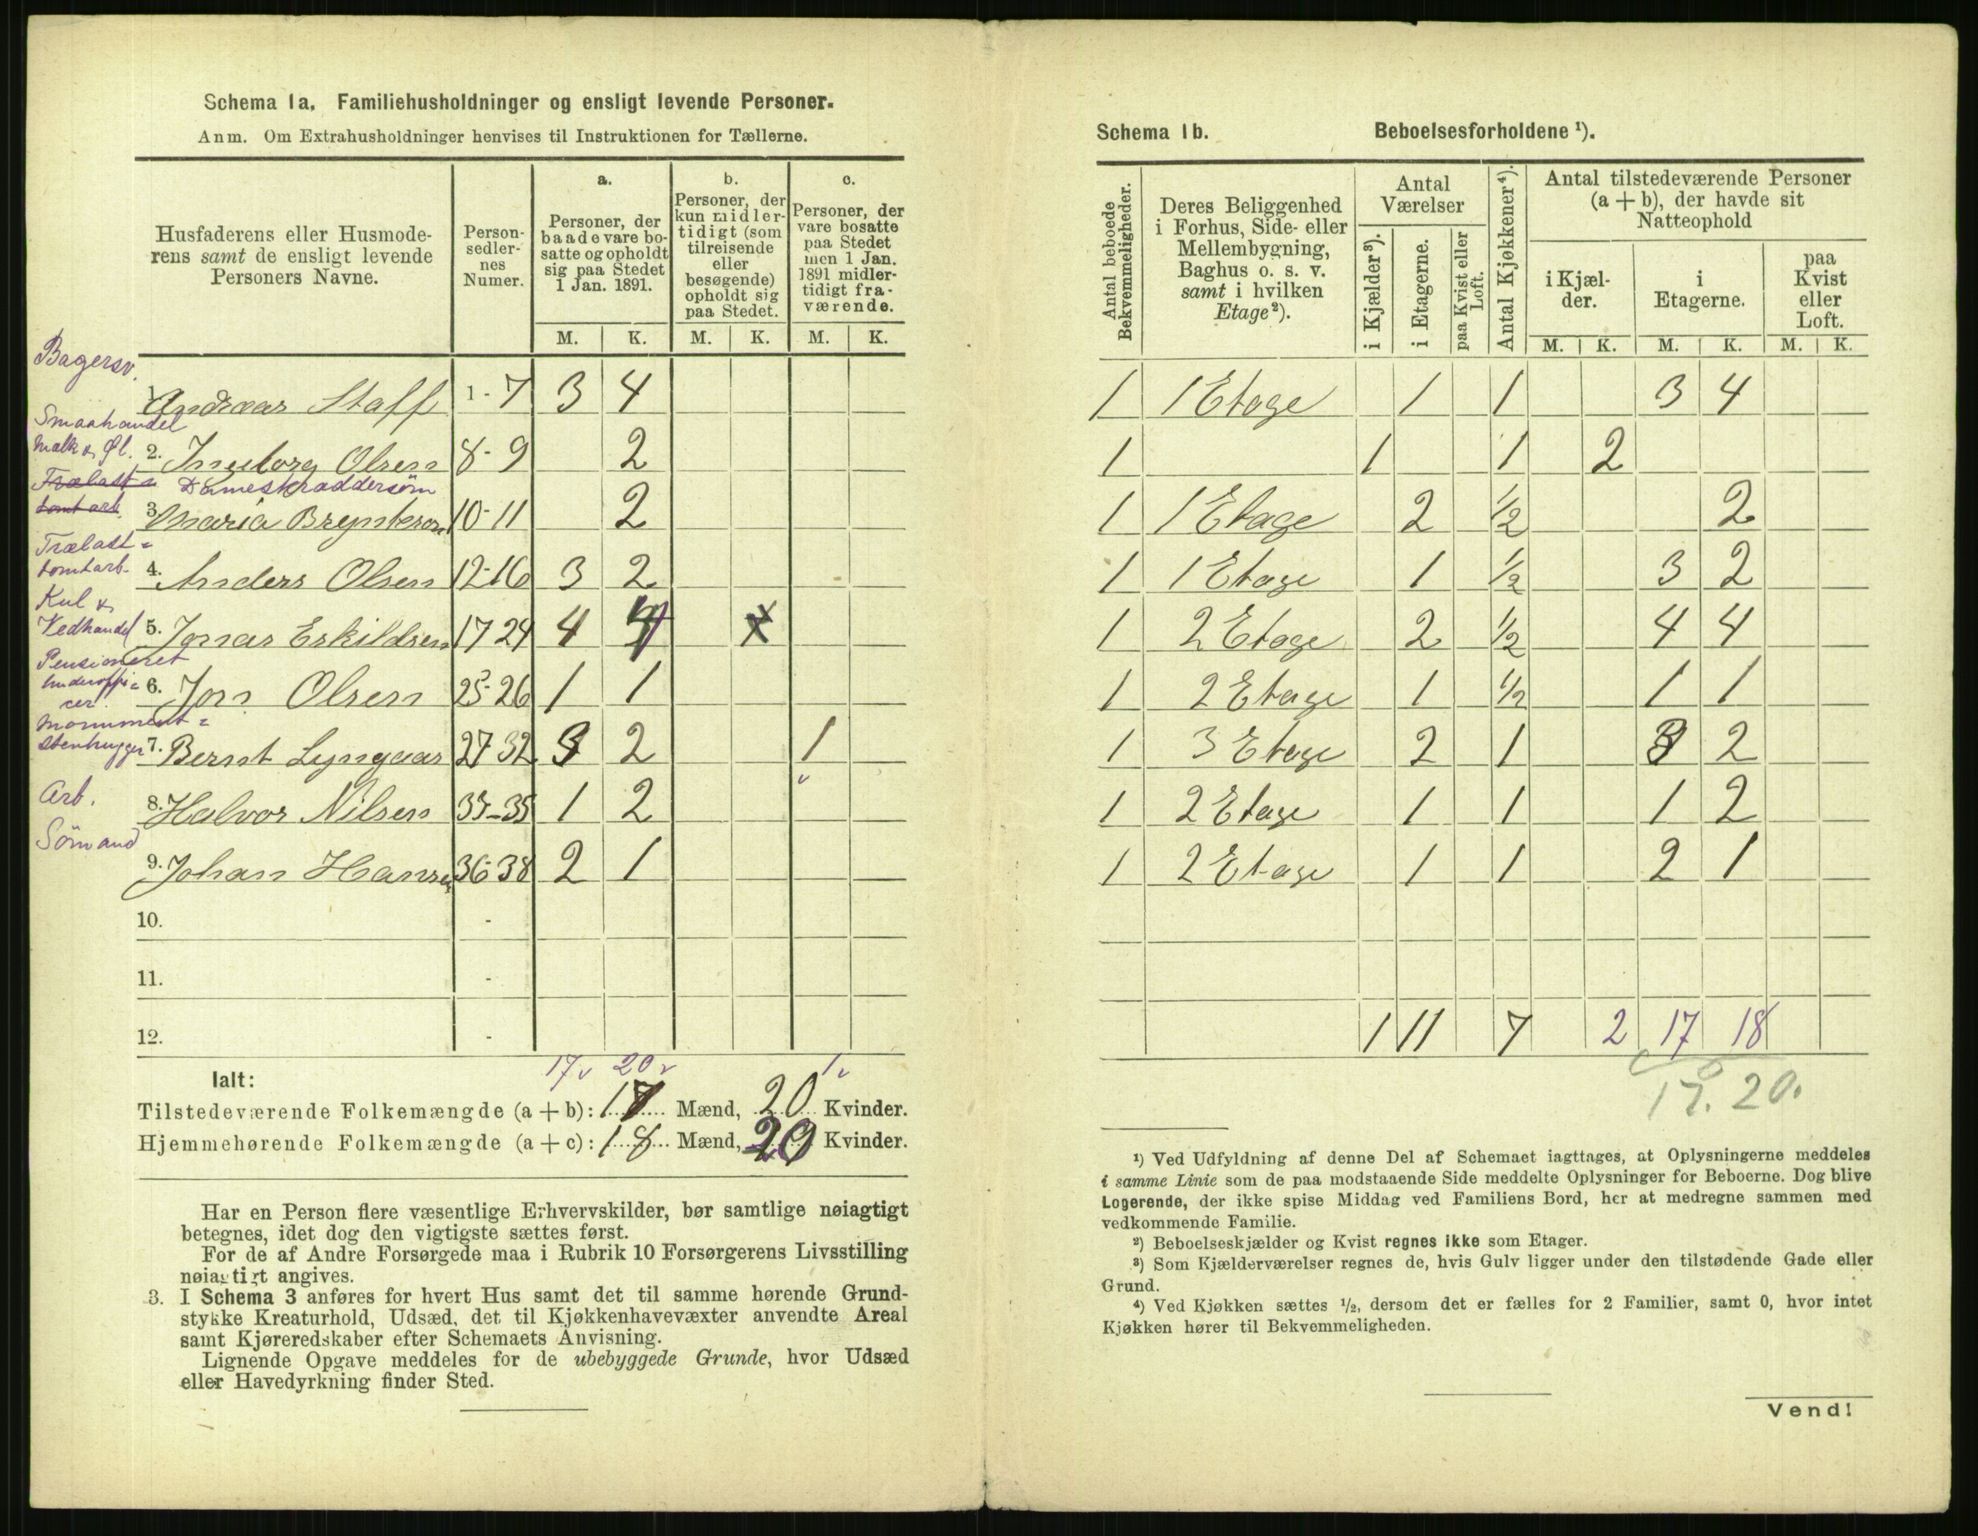 Schema 1a. Familiehusholdninger og ensligt levende Personer.
Anm. Om Extrahusholdninger henvises til Instruktionen for Tællerne.
Husfaderens eller Husmoderens samt de ensligt levende Personers Navne.
Person-sedler-nes Numer.
a.
Personer, der baade vare bosatte og opholdt sig paa Stedet 1 Jan. 1891.
b.
Personer, der kun midlertidigt (som tilreisende eller besøgende) opholdt sig paa Stedet.
c.
Personer, der vare bosatte paa Stedet men 1 Jan. 1891 midlertidigt fraværende.
M. K. M. K. M. K.
Bagersv.
1. Andreas Staff 1-7 3 4
Smaahandel
Mælk & Øl.
2. Ingeborg Olsen 8-9 2
Trælast=
tomtarb.
Dameskræddersøm
3. Maria Bryntesen 10-11 2
Trælast=
tomtarb.
4. Anders Olsen 12-16 3 2
Kul &
Vedhandel
5. Jonas Eskildsen 17-24 4 4
Pensioneret
Underoffi=
cer.
6. Jon Olsen 25-26 1 1
Monument=
stenhugger
7. Bernt Lyngaas 27-32 3 2 1
Arb.
8. Halvor Nilsen 33-35 1 2
Sømand
9. Johan Hansen 36-38 2 1
10. -
11. -
12. -
17 20 1
Ialt:
Tilstedeværende Folkemængde (a + b): 17 Mænd, 20 Kvinder.
Hjemmehørende Folkemængde (a + c): 18 Mænd, 20 Kvinder.
Har en Person flere væsentlige Erhvervskilder, bør samtlige nøiagtigt
betegnes, idet dog den vigtigste sættes først.
For de af Andre Forsørgede maa i Rubrik 10 Forsørgerens Livsstilling
nøiagtigt angives.
3. I Schema 3 anføres for hvert Hus samt det til samme hørende Grund-
stykke Kreaturhold, Udsæd, det til Kjøkkenhavevæxter anvendte Areal
samt Kjøreredskaber efter Schemaets Anvisning.
Lignende Opgave meddeles for de ubebyggede Grunde, hvor Udsæd
eller Havedyrkning finder Sted.
Schema 1b. Beboelsesforholdene ¹).
Antal beboede Bekvemmeligheder.
Deres Beliggenhed i Forhus, Side- eller Mellembygning, Baghus o. s. v. samt i hvilken Etage²).
Antal Værelser
i Kjælder³).
i Etagerne.
paa Kvist eller Loft.
Antal Kjøkkener⁴).
Antal tilstedeværende Personer (a + b), der havde sit Natteophold
i Kjæl-der.
i Etagerne.
paa Kvist eller Loft.
M. K. M. K. M. K.
1 1 Etage 1 1 3 4
1 1 1 2
1 1 Etage 2 ½ 2
1 1 Etage 1 ½ 3 2
1 2 Etage 2 ½ 4 4
1 2 Etage 1 ½ 1 1
1 3 Etage 2 1 3 2
1 2 Etage 1 1 1 2
1 2 Etage 1 1 2 1
1 11 7 2 17 18
17. 20.
¹) Ved Udfyldning af denne Del af Schemaet iagttages, at Oplysningerne meddeles
i samme Linie som de paa modstaaende Side meddelte Oplysninger for Beboerne. Dog blive
Logerende, der ikke spise Middag ved Familiens Bord, her at medregne sammen med
vedkommende Familie.
²) Beboelseskjælder og Kvist regnes ikke som Etager.
³) Som Kjælderværelser regnes de, hvis Gulv ligger under den tilstødende Gade eller
Grund.
⁴) Ved Kjøkken sættes ½, dersom det er fælles for 2 Familier, samt 0, hvor intet
Kjøkken hører til Bekvemmeligheden.
Vend!